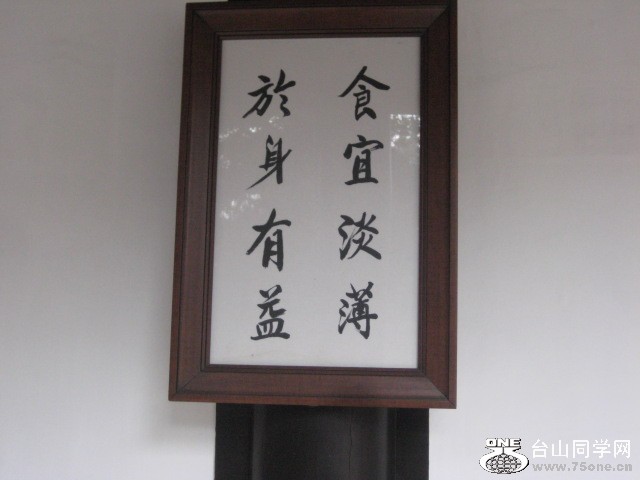 食宜淡薄
於身有益
ONE
台山同学网
www.75one.cn